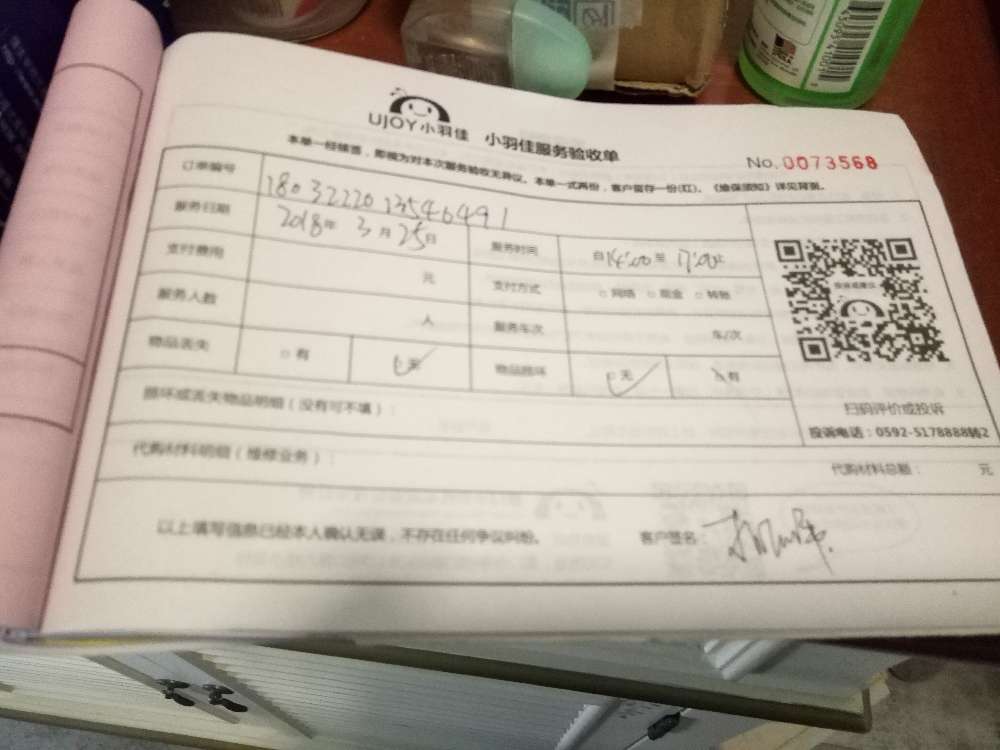 UJOY小羽佳 小羽佳服务验收单
No.0073568
本单一经接签，即视为对本次服务验收无异议。本单一式两份，客户留存一份(红)。《维保须知》详见背面。
订单编号 1803222013546491
服务日期 2018年 3月 25日 服务时间 自14:00至 17:00止
支付费用 元 支付方式 □网络 □现金 □转账
服务人数 人 服务车次 车/次
物品丢失 □有 □无 物品损坏 □无 □有
损坏或丢失物品明细（没有可不填）：
扫码评价或投诉
投诉电话：0592-5178888转2
代购材料明细（维修业务）： 代购材料总额： 元
以上填写信息已经本人确认无误，不存在任何争议纠纷。 客户签名：